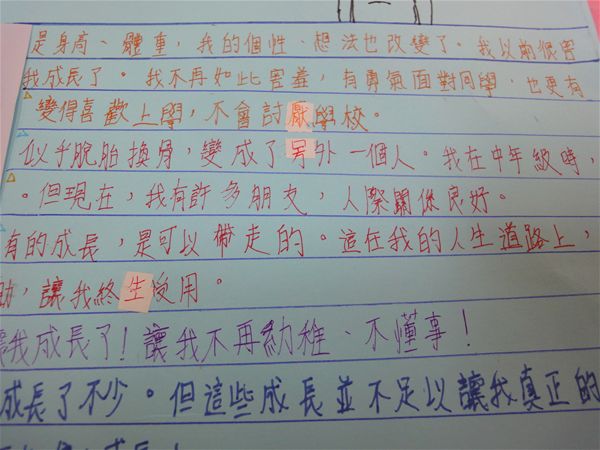 是身高、體重，我的個性、想法也改變了。我以前很害
我成長了。我不再如此害羞，有勇氣面對同學，也更有
變得喜歡上學，不會討厭學校。
似乎脫胎換骨，變成了另外一個人。我在中年級時，
。但現在，我有許多朋友，人際關係良好。
有的成長，是可以帶走的。這在我的人生道路上，
助，讓我終生受用。
我成長了！讓我不再幼稚、不懂事！
成長了不少。但這些成長並不足以讓我真正的